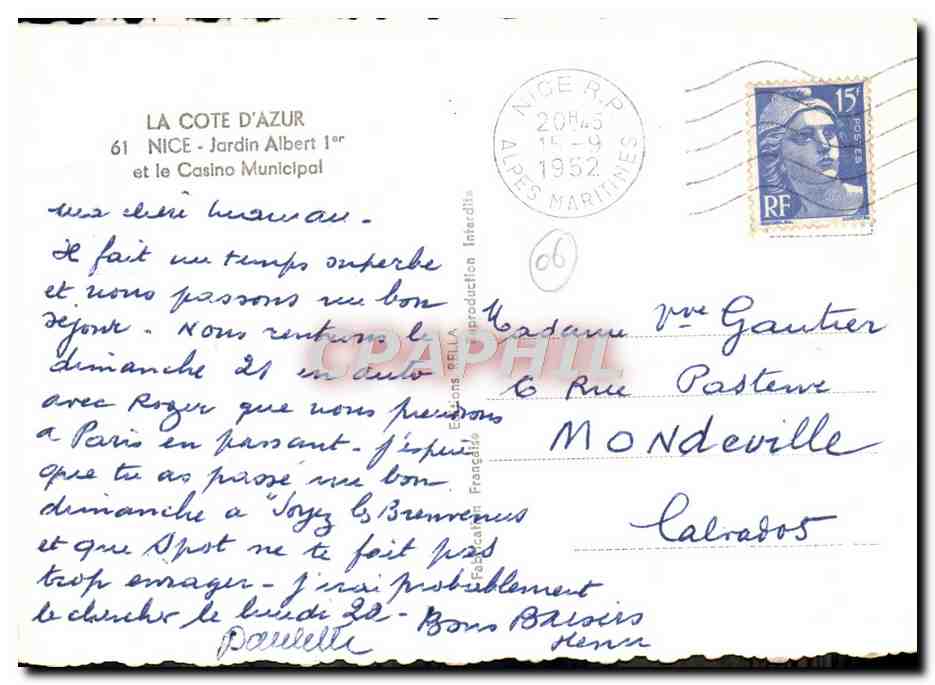 LA COTE D'AZUR
61 NICE - Jardin Albert 1er
et le Casino Municipal
ma chère maman -
Il fait un temps superbe
et nous passons un bon
séjour - Nous rentrons le
dimanche 21 en auto
avec Roger que nous prenons
a Paris en passant - j'espère
que tu as passé un bon
dimanche a "Soyez les Bienvenus
et que Spot ne te fait pas
trop enrager - j'irai probablement
le chercher le lundi 22 -
Bons Baisers
Paulette
Henri
Editions RELLA
Reproduction Interdite
Fabrication Française
NICE R.P.
20H45
15 -9
1952
ALPES MARITIMES
15F
POSTES
RF
06
Madame Vve Gautier
6 Rue Pasteur
MONDEVILLE
Calvados
CPAPHIL